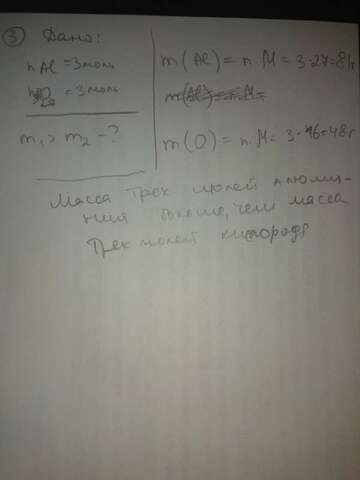 ③ Дано:
n Al = 3 моль
O₂ = 3 моль
m₁ > m₂ - ?
m(Al) = n·M = 3·27=81г
m(Al) = n·M=
m(O) = n·M = 3·16=48г
Масса трех молей алюми-
ния больше, чем масса
трех молей кислорода